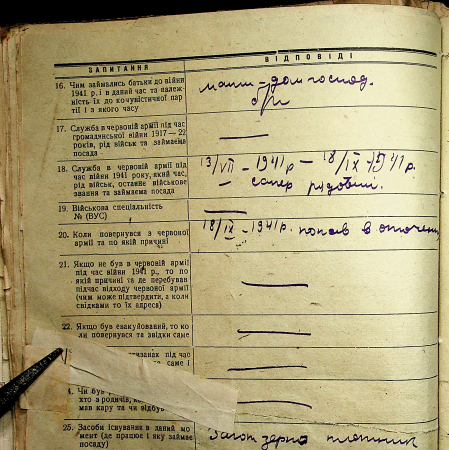 ЗАПИТАННЯ
ВІДПОВІДІ
16. Чим займались батьки до війни
1941 р. і в даний час та належ-
ність їх до комуністичної пар
тії і з якого часу
дом господ.
б/п
17. Служба в червоній армії під час
громадянської війни 1917 — 22
років, рід військ та займаєма
посада
—
18. Служба в червоній армії під
час війни 1941 року, який час,
рід військ, останнє військове
звання та займаєма посада
13/VII – 1941 р – 18/IX 1941 р.
– сапер рядовий.
19. Військова спеціальність
№ (ВУС)
—
20. Коли повернувся з червоної
армії та по якій причині
18/IX – 1941 р. попав в оточення
21. Якщо не був в червоній армії
під час війни 1941 р., то по
якій причині та де перебував
підчас відходу червоної армії
(чим може підтвердити, а коли
свідками то їх адреса)
—
22. Якщо був евакуйований, то ко
ли повернувся та звідки саме
—
тизанах під час
саме і
—
Чи був
хто з родичів,
мав кару та чи відбув
—
25. Засоби існування в даний мо
мент (де працює і яку займає
посаду)
Загот зерно плотник